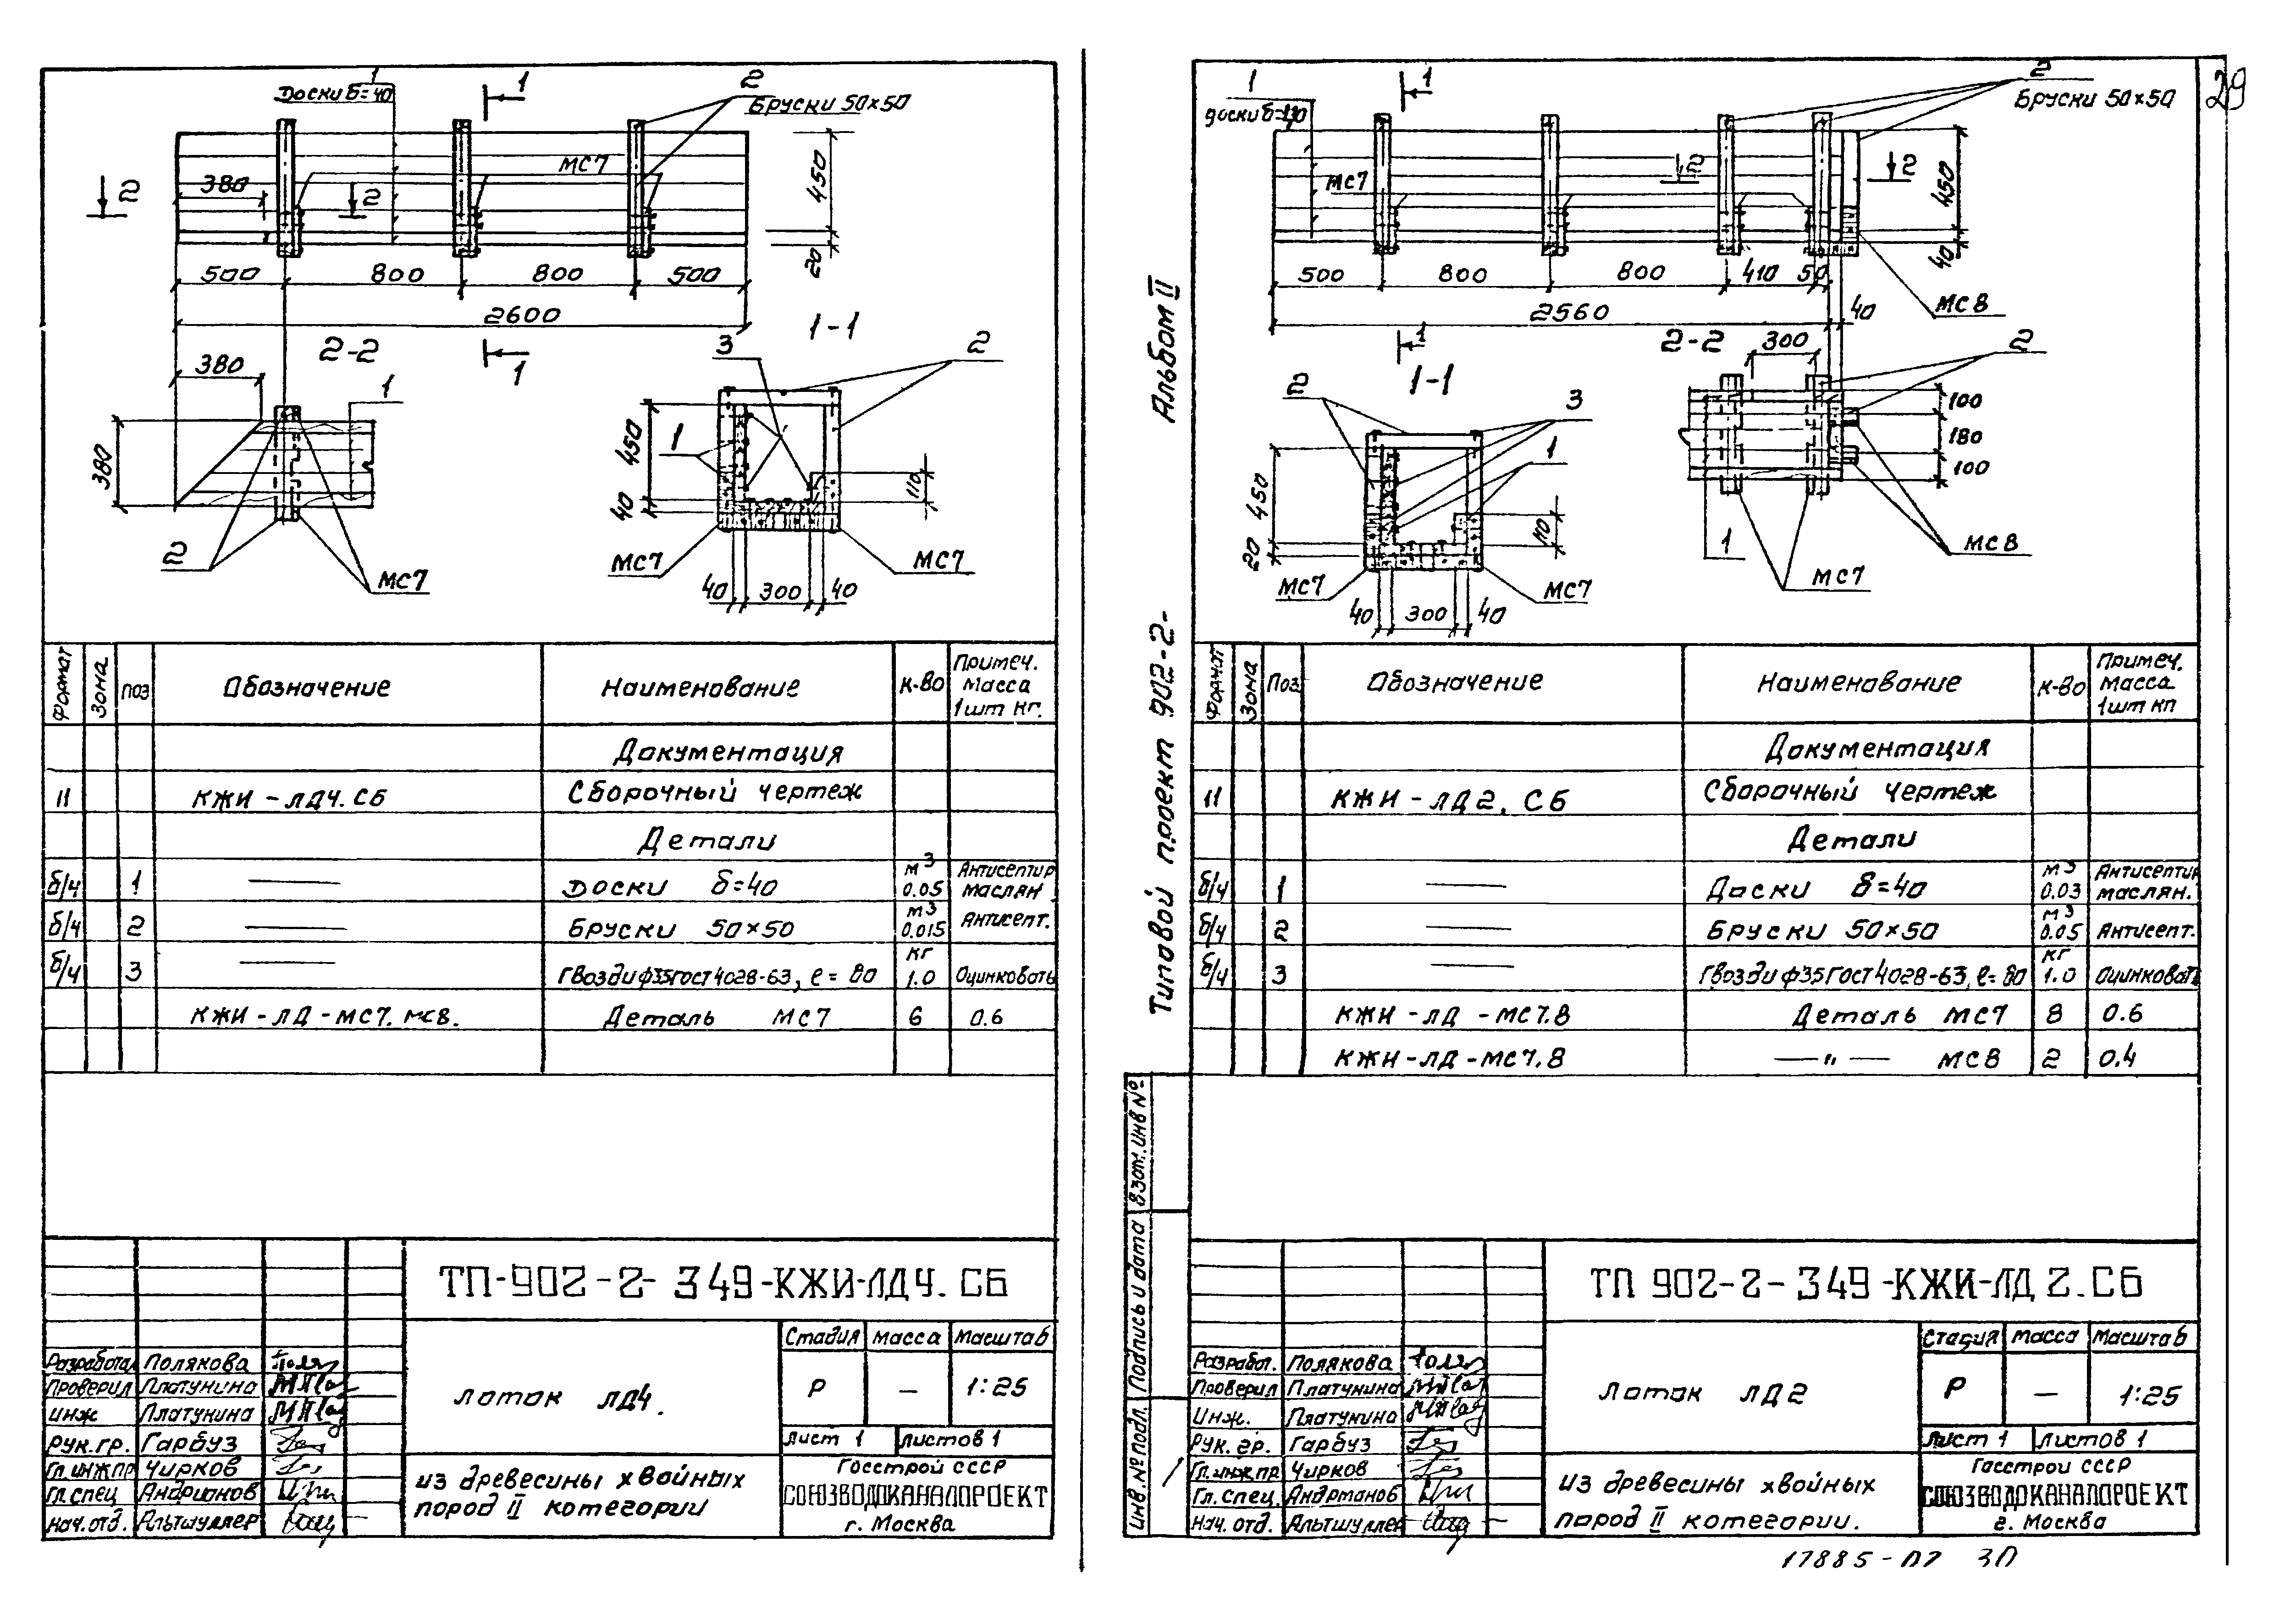 1
Доски δ=40
1
2
Бруски 50×50
МС7
380
2
2
450
20
500
800
800
500
2600
2-2
1
1-1
380
1
380
2
МС7
3
2
450
1
40
110
МС7
МС7
40
300
40
Формат
Зона
Поз
Обозначение
Наименование
К-во
Примеч.
Масса
1шт кг.
Документация
11
КЖИ-ЛД4.СБ
Сборочный чертеж
Детали
б/ч
1
Доски δ=40
м3
0.05
Антисептир
маслян
б/ч
2
Бруски 50×50
м3
0.015
Антисепт.
б/ч
3
Гвозди ф35 ГОСТ 4028-63, ℓ=80
кг
1.0
Оцинковать
КЖИ-ЛД-МС7. МС8.
Деталь МС7
6
0.6
ТП-902-2-349-КЖИ-ЛД4.СБ
Стадия
Масса
Масштаб
Р
—
1:25
Лист 1
Листов 1
Лоток ЛД4.
Разработал
Полякова
Проверил
Платунина
Инж
Платунина
Рук.гр.
Гарбуз
Гл.инж.пр
Чирков
Гл.спец
Андрианов
Нач.отд.
Альтшуллер
из древесины хвойных
пород II котегории
Госстрой СССР
СОЮЗВОДОКАНАЛПРОЕКТ
г. Москва
29
Альбом II
Типовой проект 902-2-
1
доски δ=40
1
2
Бруски 50×50
МС7
2
2
450
40
500
800
800
410
50
40
2560
МС8
1
1-1
2-2
300
2
2
3
1
450
20
110
МС7
МС7
40
300
40
100
180
100
1
МС7
МС8
Формат
Зона
Поз
Обозначение
Наименование
К-во
Примеч.
Масса
1шт кг
Документация
11
КЖИ-ЛД2. СБ
Сборочный чертеж
Детали
б/ч
1
Доски δ=40
м3
0.03
Антисептир
маслян.
б/ч
2
Бруски 50×50
м3
0.05
Антисепт.
б/ч
3
Гвозди ф35 ГОСТ 4028-63, ℓ=80
кг
1.0
Оцинковать
КЖИ-ЛД-МС7.8
Деталь МС7
8
0.6
КЖИ-ЛД-МС7.8
—„— МС8
2
0.4
Взам. инв №
Подпись и дата
Инв.№ подл.
ТП 902-2-349-КЖИ-ЛД2.СБ
Стадия
Масса
Масштаб
Р
—
1:25
Лист 1
Листов 1
Лоток ЛД2
Разработ.
Полякова
Проверил
Платунина
Инж.
Платунина
Рук. гр.
Гарбуз
Гл.инж.пр
Чирков
Гл.спец.
Андрианов
Нач.отд.
Альтшуллер
из древесины хвойных
пород II котегории.
Госстрой СССР
СОЮЗВОДОКАНАЛПРОЕКТ
г. Москва
17885-02 30